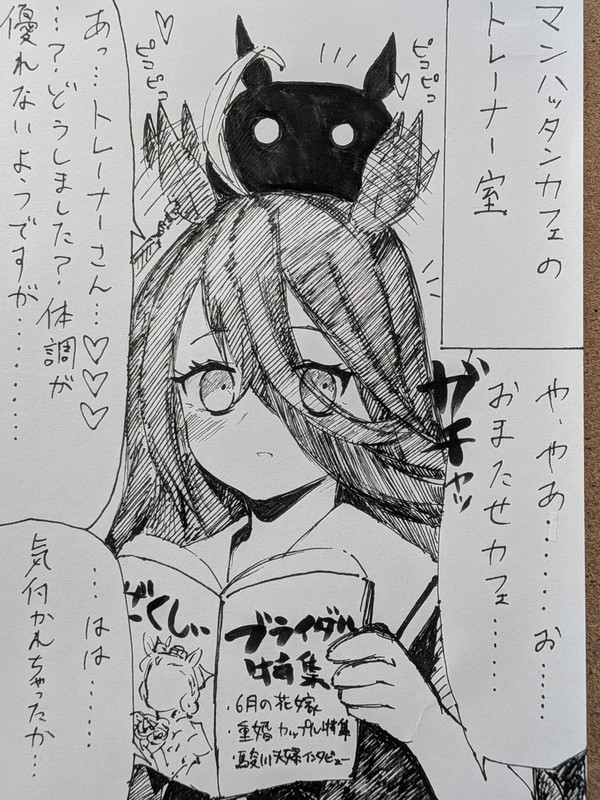 マンハッタンカフェの
トレーナー室
や、やあ……お……
おまたせカフェ……
ガチャッ
ピコピコ
ピコピコ
あっ…トレーナーさん…♡♡♡
…?どうしました?体調が
優れないようですが…………
…はは……
気付かれちゃったか…
ぜくしぃ
ブライダル
特集
・6月の花嫁
・重婚カップル特集
・駿川夫婦インタビュー